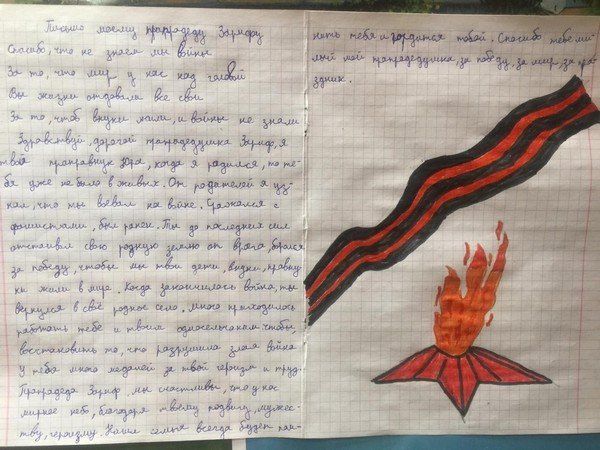 Письмо моему прапрадеду Зарифу
Спасибо, что не знаем мы войны
За то, что мир у нас над головой
Вы жизни отдавали все свои
За то, чтоб внуки жили, и войны не знали
Здравствуй, дорогой прапрадедушка Зариф, я
твой праправнук Юра, когда я родился, то те-
бя уже не было в живых. От родителей я уз-
нал, что ты воевал на войне. Сражался с
фашистами, был ранен. Ты до последних сил
отстаивал свою родную землю от врага, боролся
за победу, чтобы мы твои дети, внуки, правну-
ки жили в мире. Когда закончилась война, ты
вернулся в своё родное село. Много приходилось
работать тебе и твоим односельчанам чтобы,
восстановить то, что разрушила злая война
У тебя много медалей за твой героизм и труд.
Прапрадед Зариф мы счастливы, что у нас
мирное небо, благодаря твоему подвигу, мужес-
тву, героизму. Наша семья всегда будет пом-
нить тебя и гордится тобой. Спасибо тебе ми-
лый мой прапрадедушка, за победу, за мир, за пра-
здник.